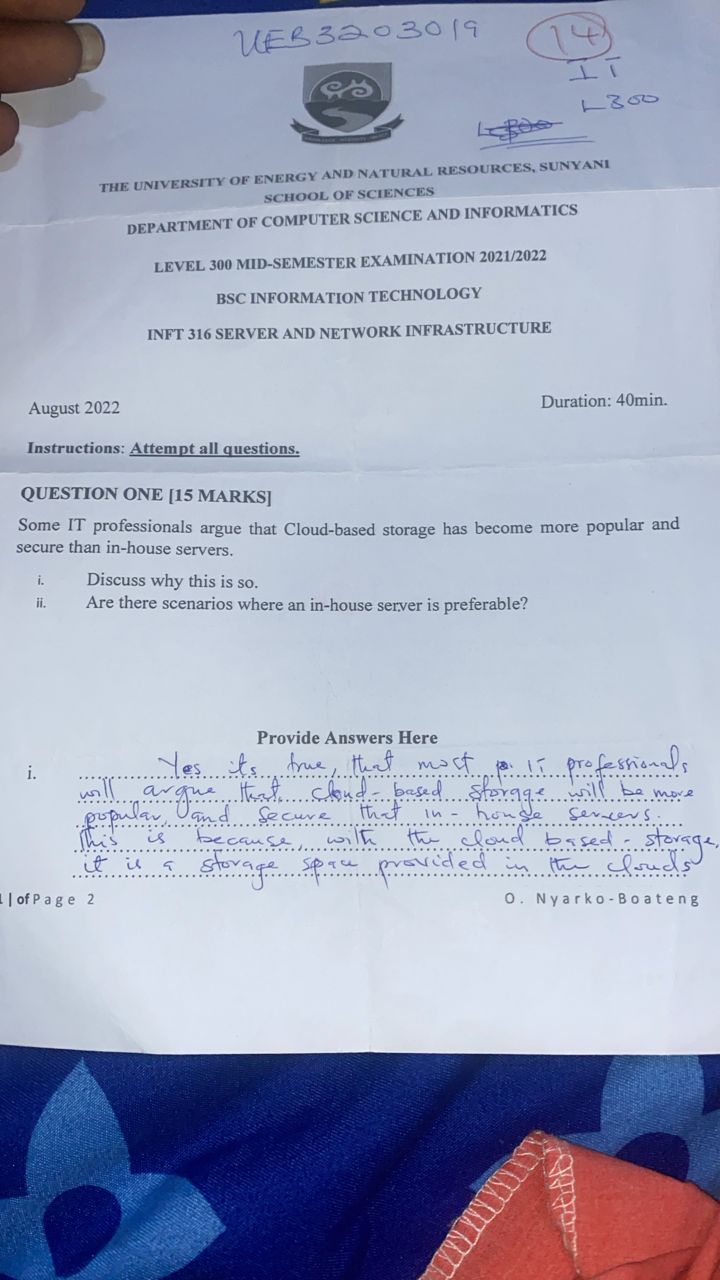 UEB3203019
14
IT
L300
THE UNIVERSITY OF ENERGY AND NATURAL RESOURCES, SUNYANI
SCHOOL OF SCIENCES
DEPARTMENT OF COMPUTER SCIENCE AND INFORMATICS
LEVEL 300 MID-SEMESTER EXAMINATION 2021/2022
BSC INFORMATION TECHNOLOGY
INFT 316 SERVER AND NETWORK INFRASTRUCTURE
August 2022 Duration: 40min.
Instructions: Attempt all questions.
QUESTION ONE [15 MARKS]
Some IT professionals argue that Cloud-based storage has become more popular and
secure than in-house servers.
i. Discuss why this is so.
ii. Are there scenarios where an in-house server is preferable?
Provide Answers Here
i. Yes its true, that most IT professionals
will argue that cloud-based storage will be more
popular, and secure that in-house servers.
This is because, with the cloud based-storage,
it is a storage space provided in the clouds
1 | of Page 2 O. Nyarko-Boateng